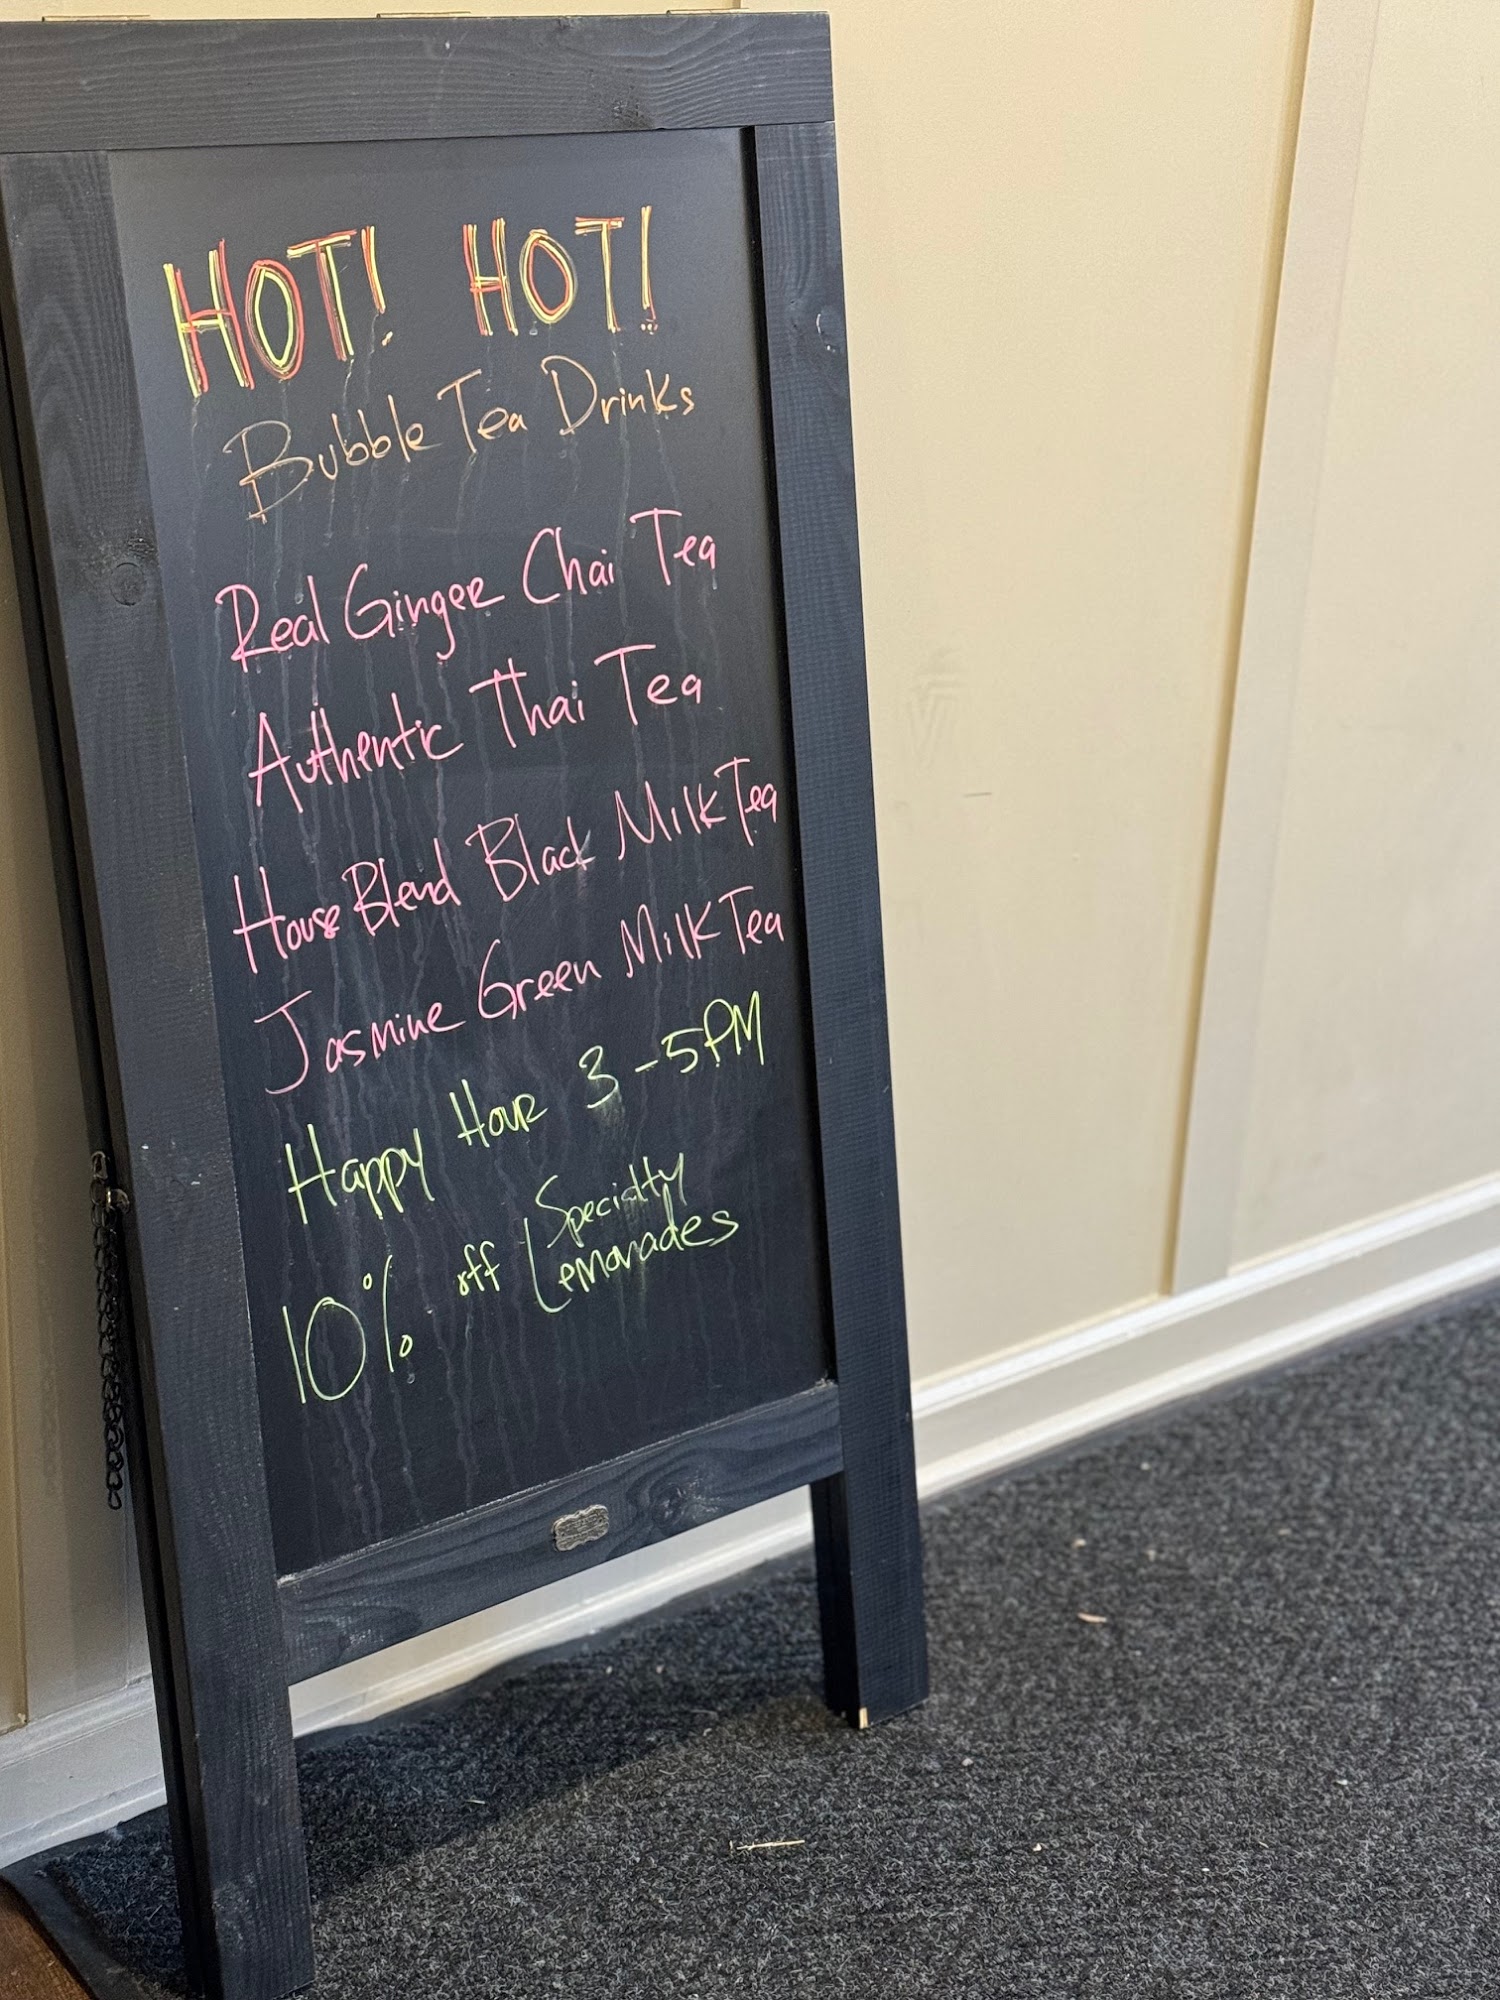 HOT! HOT!
Bubble Tea Drinks
Real Ginger Chai Tea
Authentic Thai Tea
House Blend Black Milk Tea
Jasmine Green Milk Tea
Happy Hour 3-5PM
10% off Specialty
Lemonades